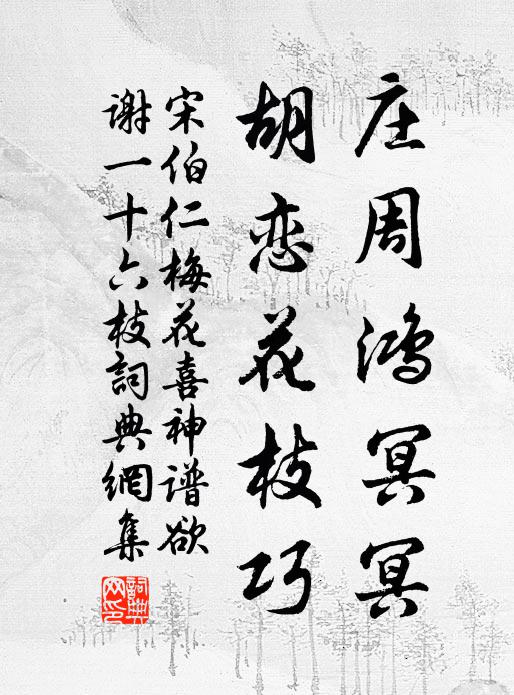 庄周鸿冥冥
胡恋花枝巧
宋伯仁梅花喜神谱欲
谢一十六枝詞典網集
詞典网印